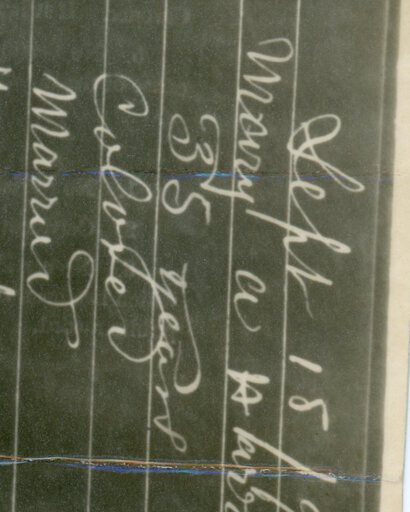 Sept 18
Mary a
35 years
Colored
Married